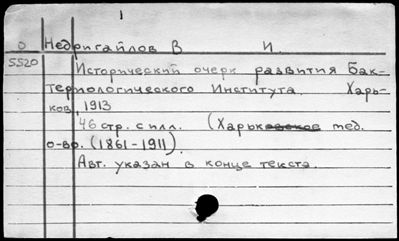 1
О Недригайлов В И.
5520 Исторический очерк развития Бак-
териологического Института. Харь-
ков, 1913
46 стр. с илл. (Харьковское мед.
о-во. (1861-1911).
Авт. указан в конце текста.